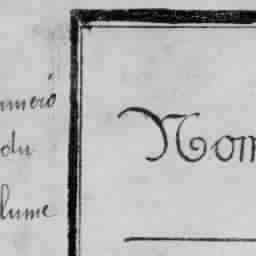 uméro
du
lume
Nom